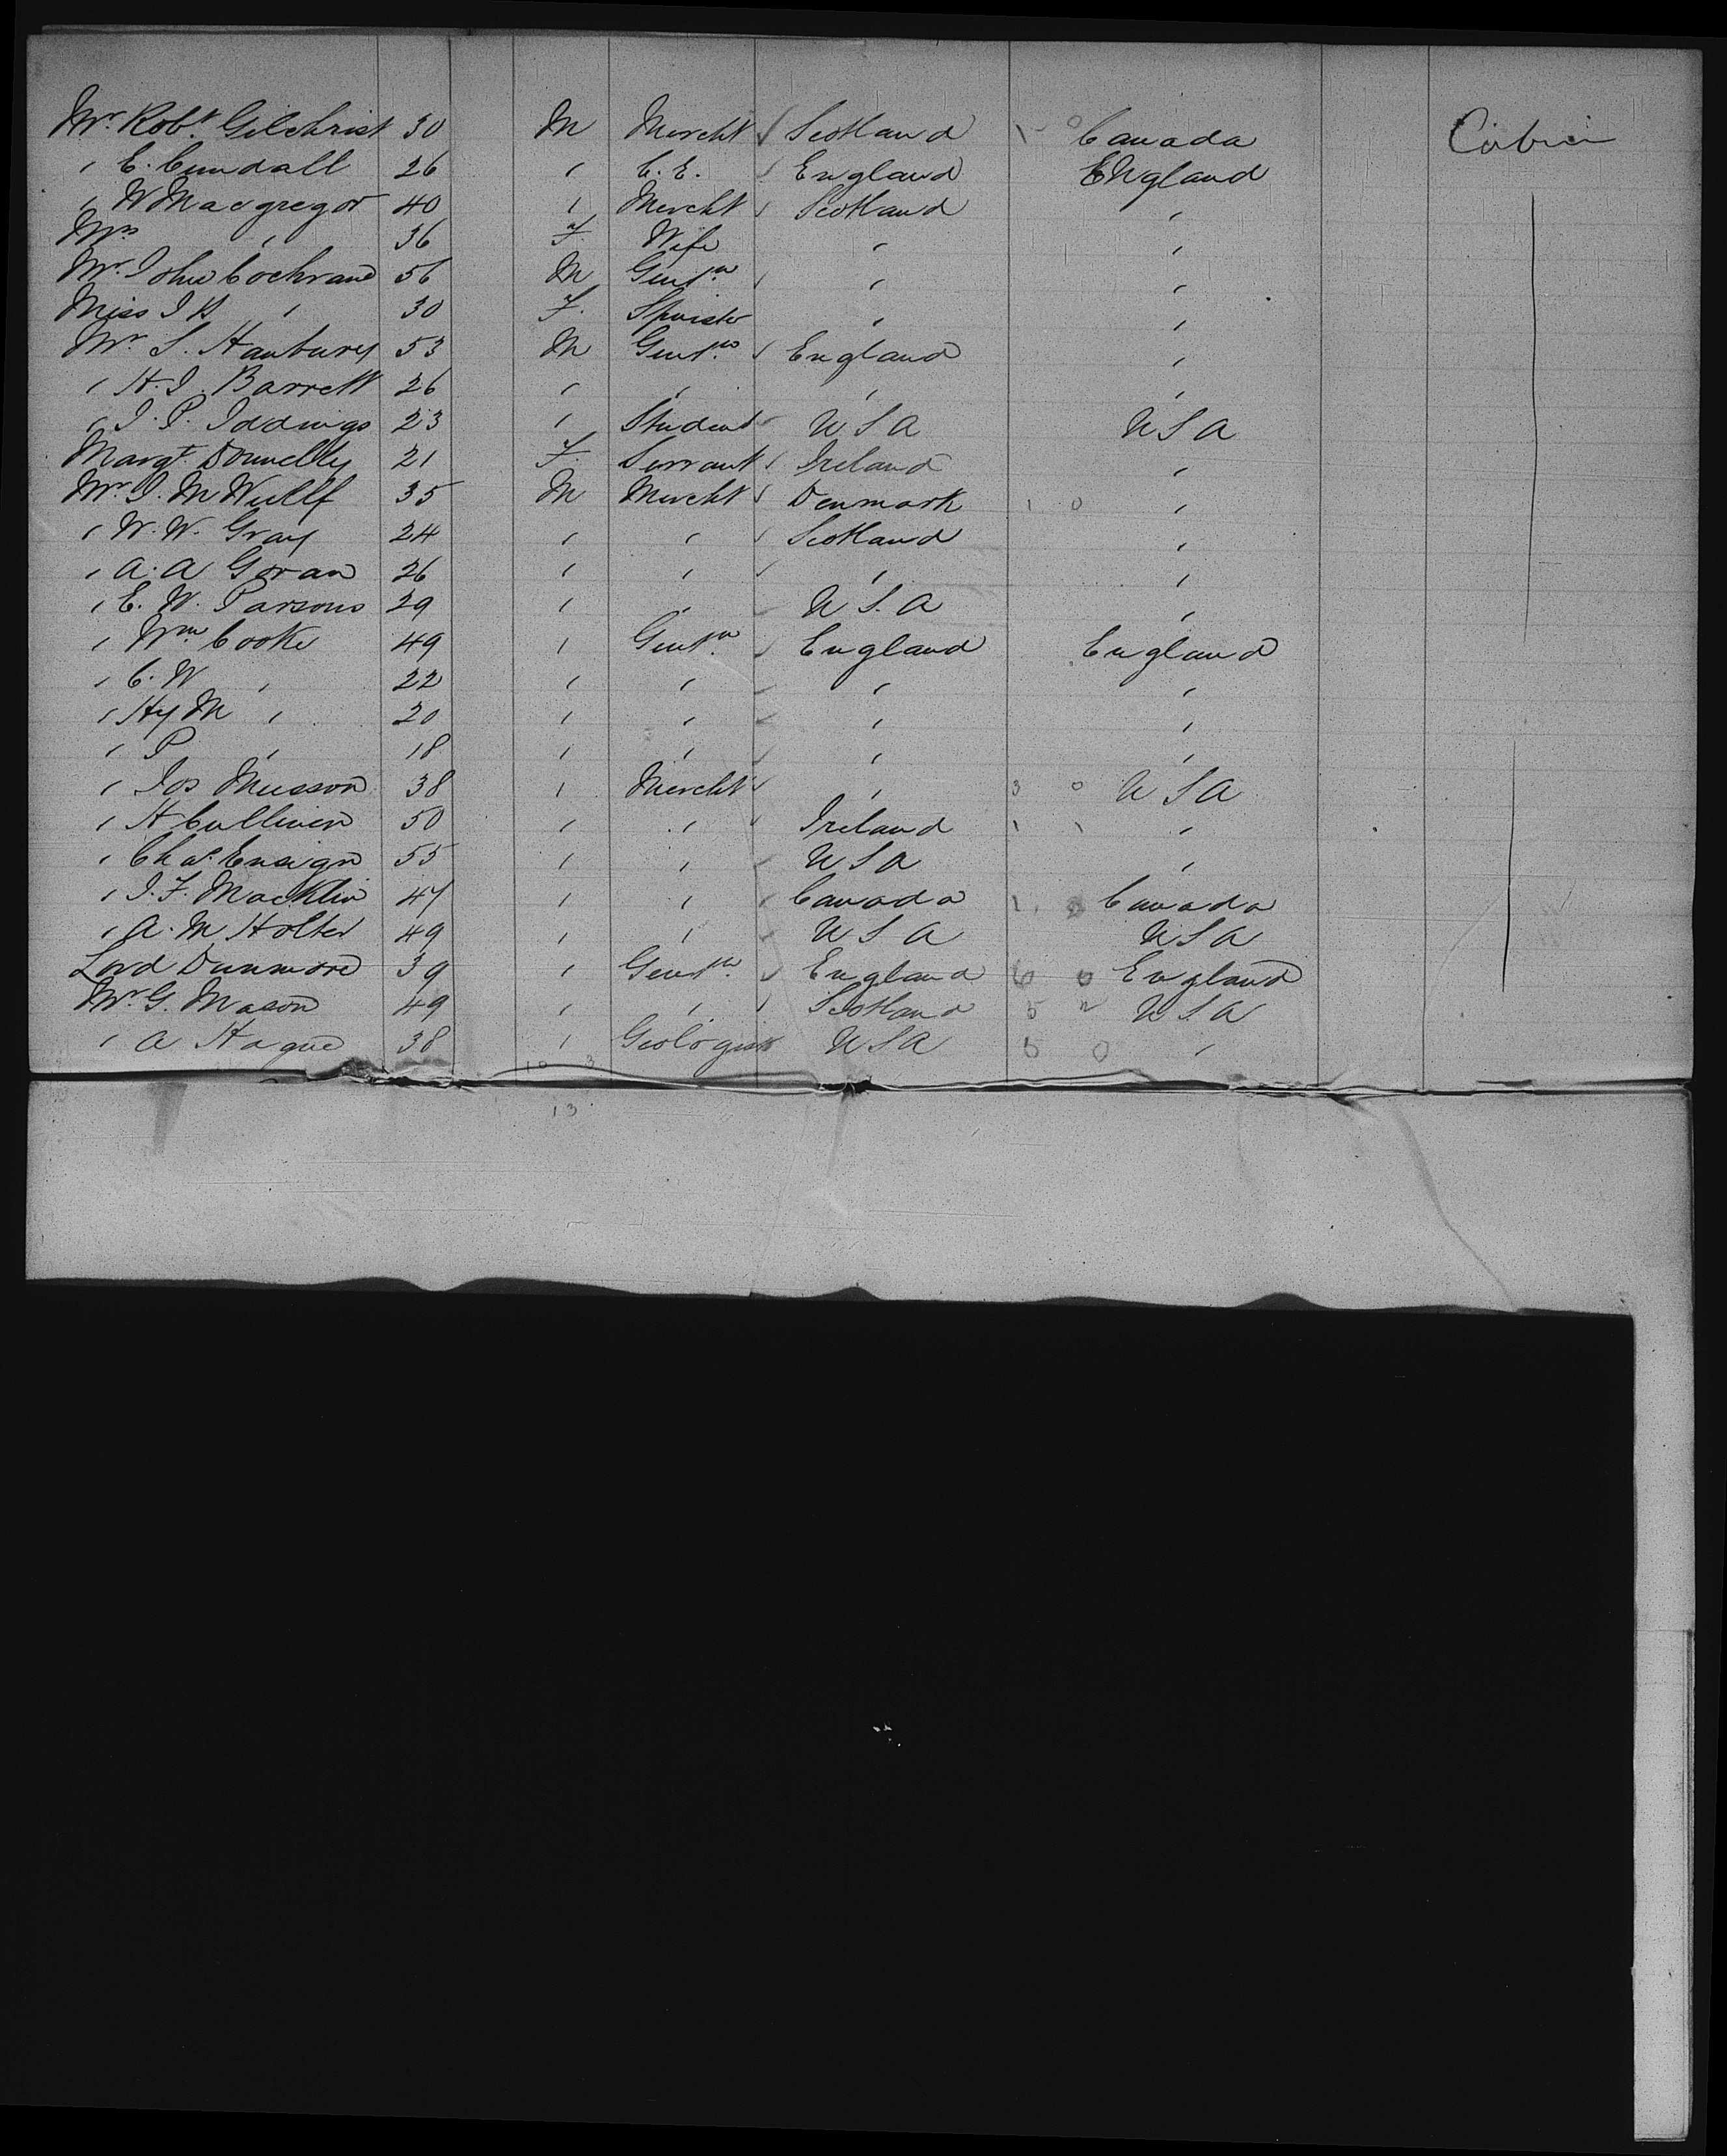 Mr. Robt. Gilchrist 30 M Mercht Scotland 1 0 Canada Cabin
" E. Cundall 26 " C. E. England England
" W Macgregor 40 " Mercht Scotland "
Mrs " 36 F. Wife " "
Mr. John Cochrane 56 M Gentn. " "
Miss J B " 30 F. Spinster " "
Mr S. Hanbury 53 M Gentn. England "
" H. J. Barrett 26 " " " "
" J. P. Iddings 23 " Student U S A U S A
Margt. Donnelly 21 F. Servant Ireland "
Mr. J. M Wullf 35 M Mercht Denmark 1 0 "
" W. W. Gray 24 " " Scotland "
" A. A Goran 26 " " " "
" E. W. Parsons 29 " " U S. A "
" Wm Cooke 49 " Gentn. England England
" C. W " 22 " " " "
" Hy M " 20 " " " "
" P " 18 " " " "
" Jos Musson 38 " Mercht " 3 0 U S A
" H Culliven 50 " " Ireland 1 1 "
" Chas. Ensign 55 " " U S A "
" J. F. Macklin 47 " " Canada 1 Canada
" A. M Holter 49 " " U S A U S A
Lord Dunmore 39 " Gentn. England 6 0 England
Mr. G. Mason 49 " " Scotland 5 2 U S A
" A Hague 38 " Geologist U S A 6 0 "
10 3
13